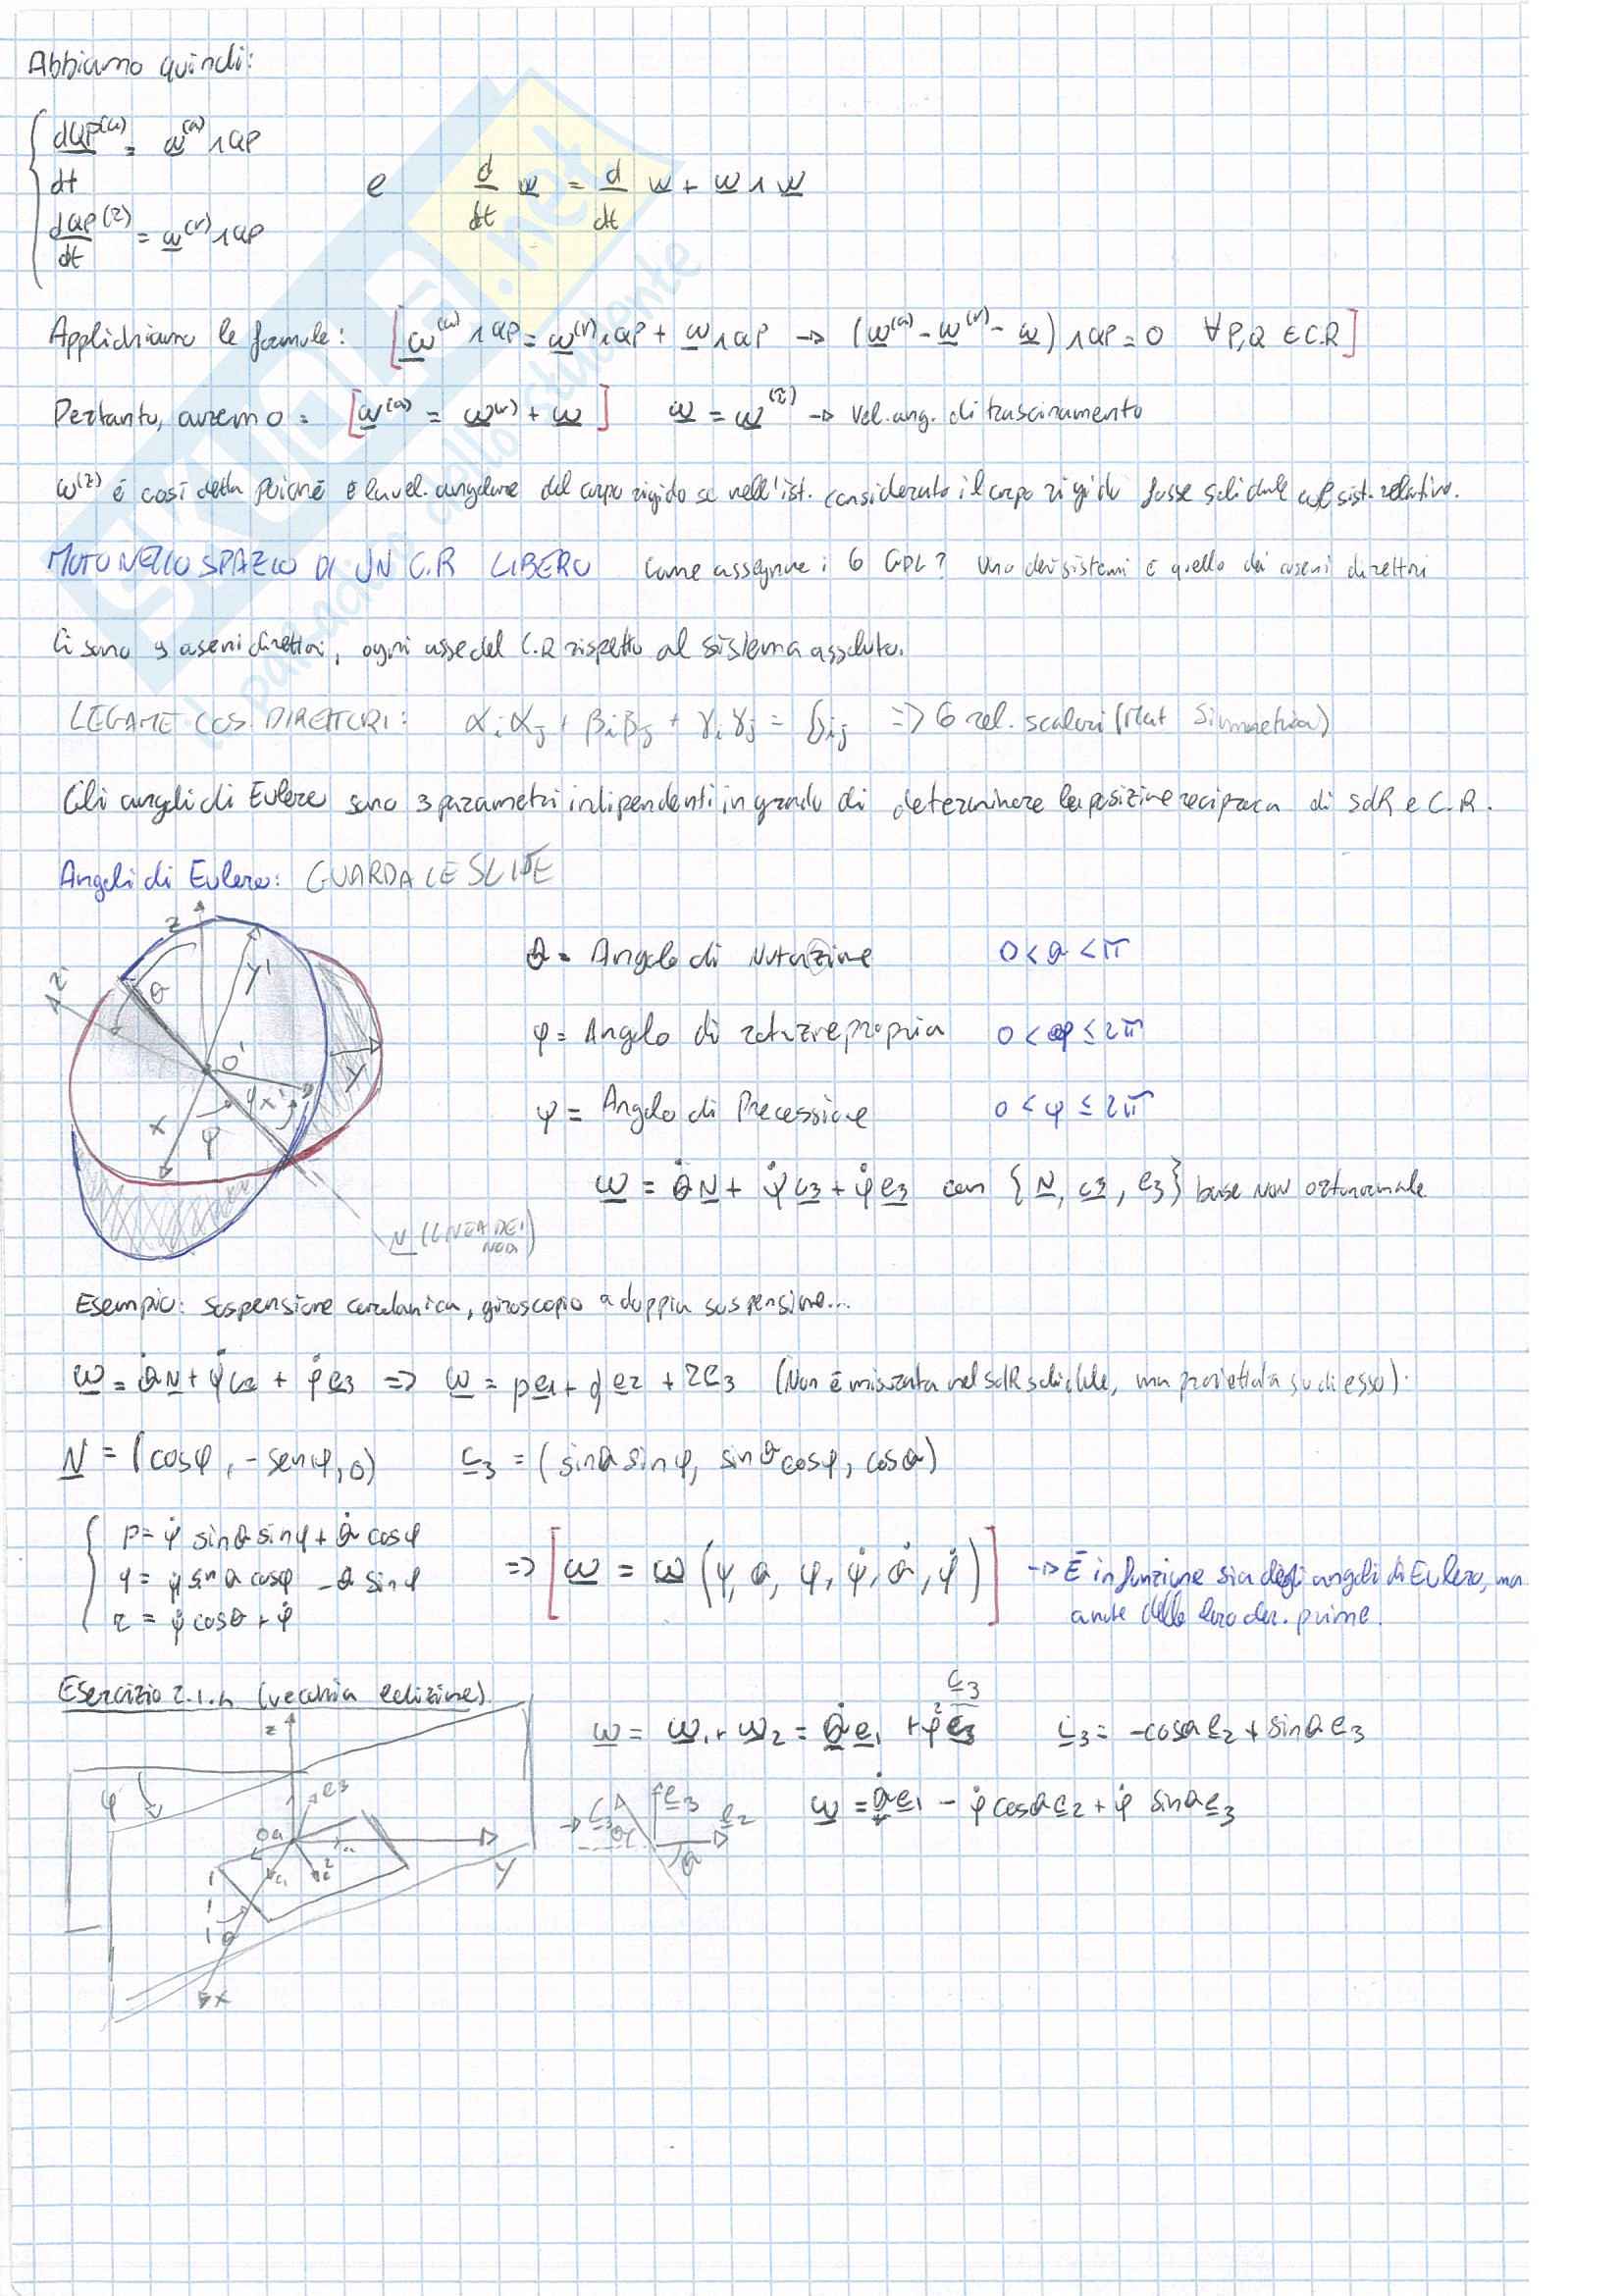 Abbiamo quindi:
dQP^(a)/dt = ω^(a) ∧ QP
e d/dt w = d/dt w + ω ∧ w
dQP^(r)/dt = ω^(r) ∧ QP
Applichiamo le formule: [ω^(a) ∧ QP = ω^(r) ∧ QP + ω ∧ QP → (ω^(a) - ω^(r) - ω) ∧ QP = 0 ∀P,Q ∈ C.R]
Pertanto, avremo: [ω^(a) = ω^(r) + ω] ω = ω^(τ) → Vel. ang. di trascinamento
ω^(τ) è così detta poiché è la vel. angolare del corpo rigido se nell'ist. considerato il corpo rigido fosse solidale al sist. relativo.
MOTO NELLO SPAZIO DI UN C.R LIBERO Come assegnare i 6 GDL? Uno dei sistemi è quello dei coseni direttori
Ci sono 9 coseni direttori, ogni asse del C.R rispetto al sistema assoluto.
LEGAME COS. DIRETTORI: αiαj + βiβj + γiγj = δij => 6 rel. scalari (Mat Simmetrica)
Gli angoli di Eulero sono 3 parametri indipendenti in grado di determinare la posizione reciproca di SdR e C.R.
Angoli di Eulero: GUARDA LE SLIDE
z
z'
θ
y'
O'
y
x
x'
φ
ψ
N (LINEA DEI NODI)
θ = Angolo di Nutazione 0 < θ < π
φ = Angolo di rotaz.ne propria 0 < φ ≤ 2π
ψ = Angolo di Precessione 0 < ψ ≤ 2π
ω = θ̇N + ψ̇c3 + φ̇e3 con {N, c3, e3} base NON ortonormale
Esempio: Sospensione cardanica, giroscopio a doppia sospensione...
ω = θ̇N + ψ̇c3 + φ̇e3 => ω = pe1 + qe2 + re3 (Non è misurata nel SdR solidale, ma proiettata su di esso).
N = (cosφ, -senφ, 0) c3 = (sinθ sinφ, sinθ cosφ, cosθ)
p = ψ̇ sinθ sinφ + θ̇ cosφ
q = ψ̇ sinθ cosφ - θ̇ sinφ
r = ψ̇ cosθ + φ̇
=> [ω = ω(ψ, θ, φ, ψ̇, θ̇, φ̇)] → È in funzione sia degli angoli di Eulero, ma
anche delle loro der. prime.
Esercizio 2.1.4 (vecchia edizione)
ω = ω1 + ω2 = θ̇e1 + φ̇ c3 c3 = -cosθ e2 + sinθ e3
ω = θ̇e1 - φ̇ cosθ e2 + φ̇ sinθ e3
z
φ
e3
y
θ
x
c3
e3
e2
θ
SKUOLA.net
Il paradiso dello studente